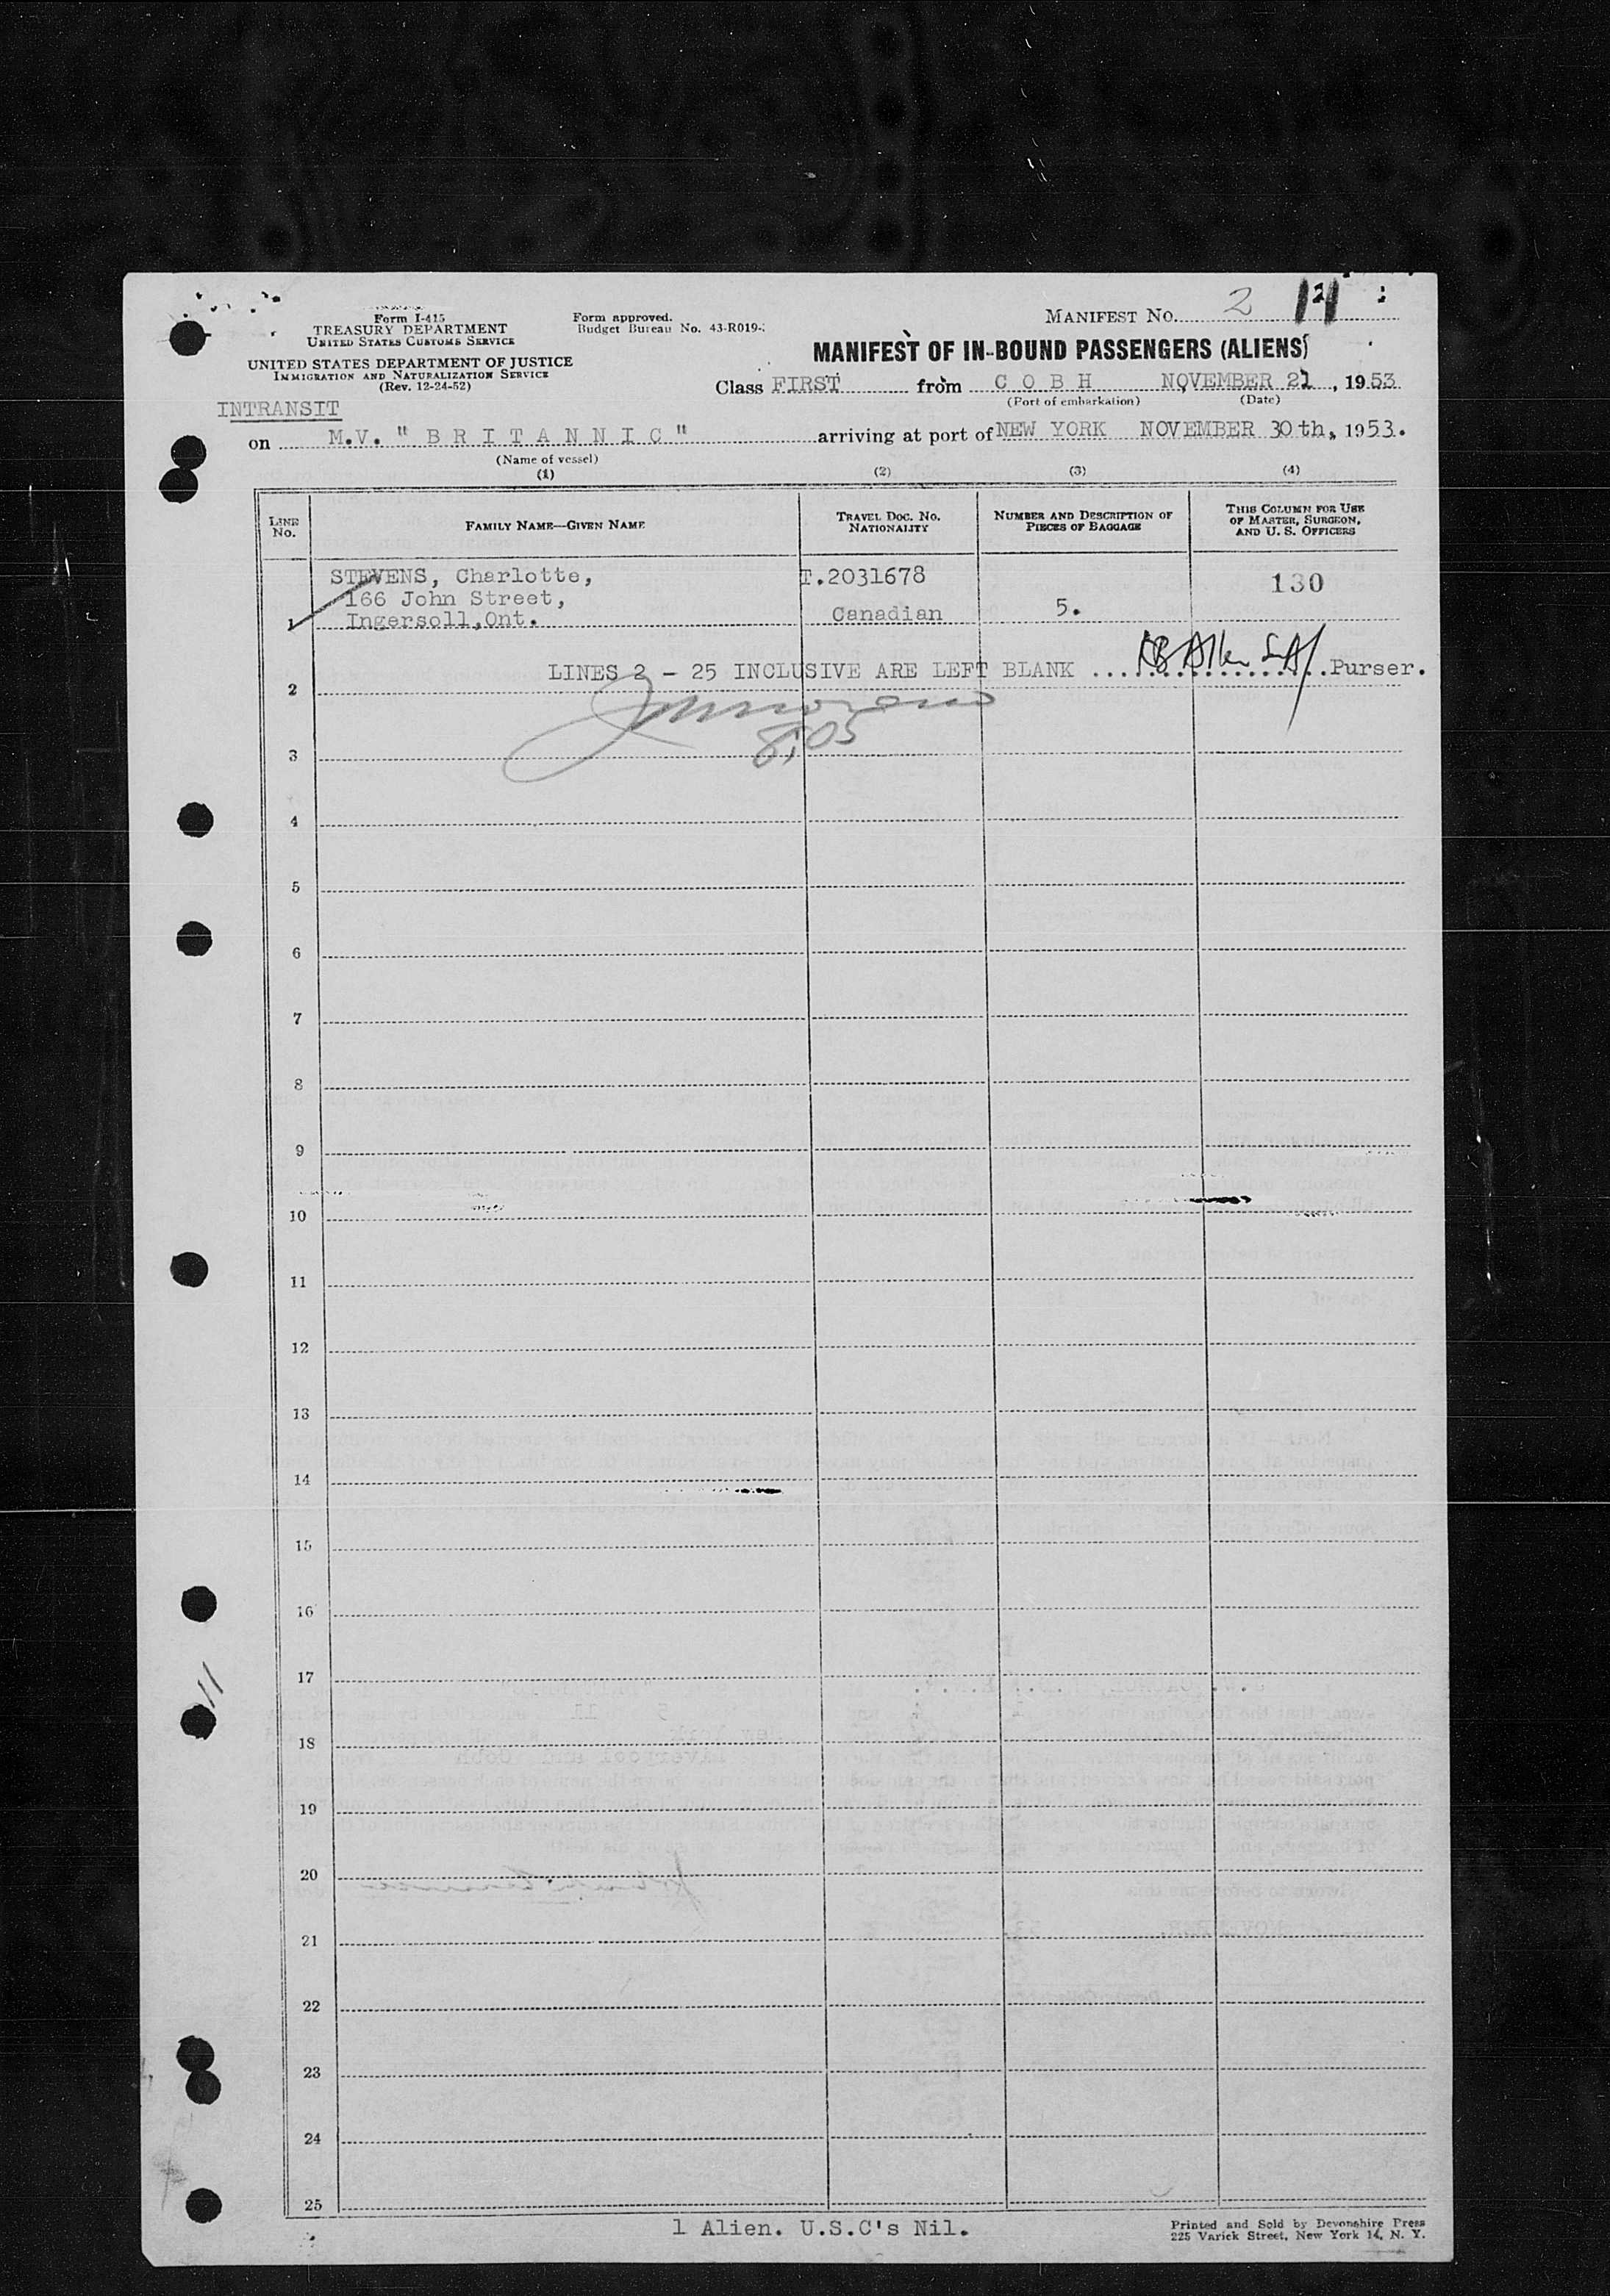 Form I-415
TREASURY DEPARTMENT
UNITED STATES CUSTOMS SERVICE
UNITED STATES DEPARTMENT OF JUSTICE
IMMIGRATION AND NATURALIZATION SERVICE
(Rev. 12-24-52)
Form approved.
Budget Bureau No. 43-R019-
MANIFEST No. 2
MANIFEST OF IN-BOUND PASSENGERS (ALIENS)
Class FIRST from C O B H NOVEMBER 21, 1953
(Port of embarkation) (Date)
INTRANSIT
on M.V. " B R I T A N N I C " arriving at port of NEW YORK NOVEMBER 30th, 1953.
(Name of vessel)
(1) (2) (3) (4)
LINE No. FAMILY NAME—GIVEN NAME TRAVEL DOC. NO. NATIONALITY NUMBER AND DESCRIPTION OF PIECES OF BAGGAGE THIS COLUMN FOR USE OF MASTER, SURGEON, AND U. S. OFFICERS
STEVENS, Charlotte, T.2031678 130
166 John Street,
1 Ingersoll, Ont. Canadian 5.
LINES 2 - 25 INCLUSIVE ARE LEFT BLANK Purser.
2
3
4
5
6
7
8
9
10
11
12
13
14
15
16
17
18
19
20
21
22
23
24
25
11
1 Alien. U.S.C's Nil.
Printed and Sold by Devonshire Press
225 Varick Street, New York 14, N. Y.